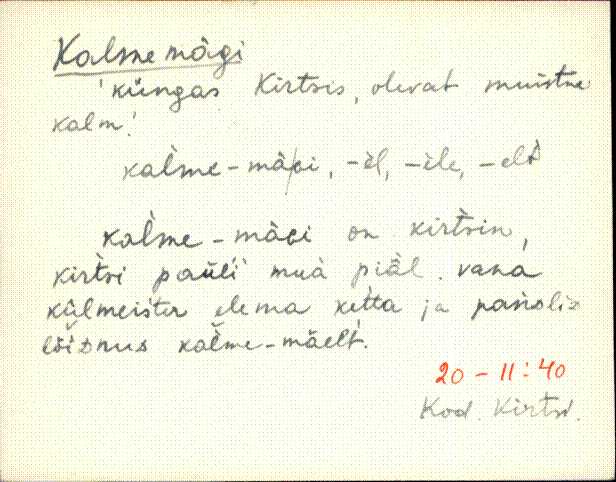 Kalmemägi
'küngas Kirtsis, olevat muistne
kalm.'
kaĺme-mägi, -èl, -èle, -elt
kaĺme-mäGi on kirt̀sin,
kirt̀si paùli muà piäl. vana
külmeister elema ketta ja
lõiDnus kaĺme-mäelt̀.
20-11:40
Kod. Kirtsi.